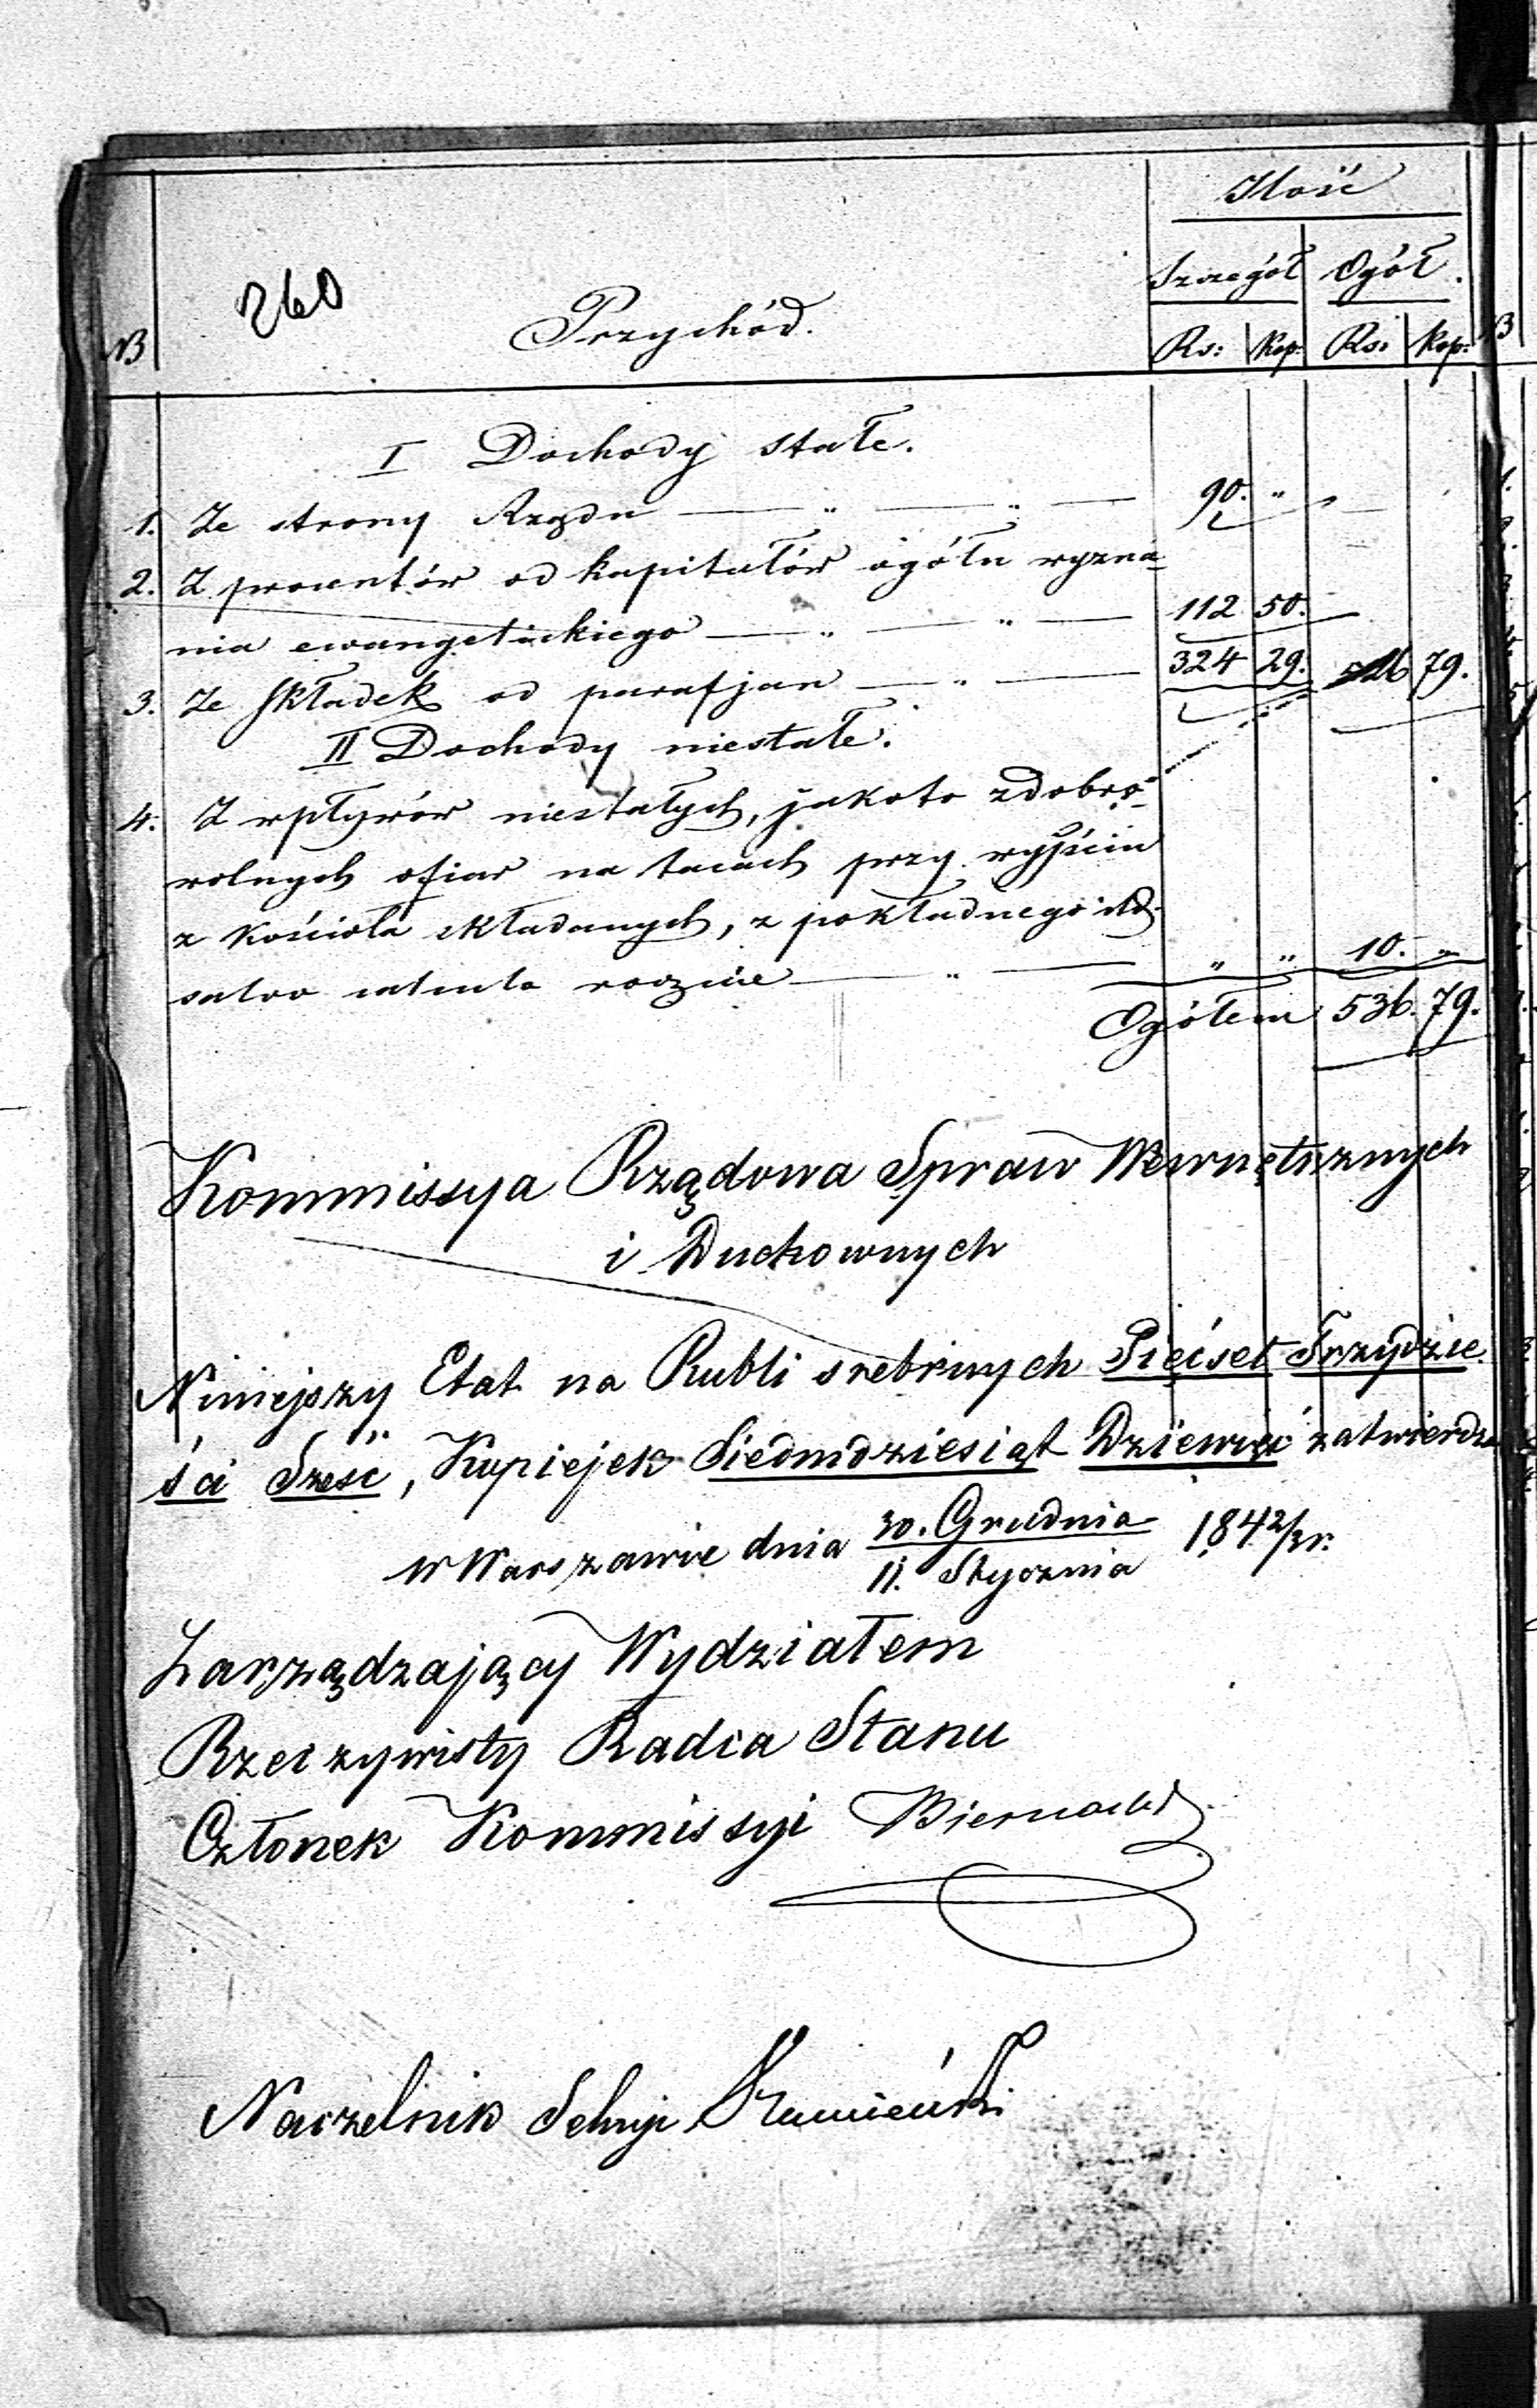 Ilość
260
Szczegół Ogół.
NB Przychód. Rs: Kop: Rs: Kop:
I Dochody stałe.
1. Ze strony Rządu — " — " — 90. "
2. Z procentów od kapitałów ogółu wyzna-
nia ewangelickiego — " — " — 112 50.
3. Ze składek od parafjan — " — 324 29. 526 79.
II Dochody niestałe.
4. Z wpływów niestałych, jakoto z dobro-
wolnych ofiar na tacach przy wyjściu
z kościoła składanych, z pokładnego itd.
salvo calculo rocznie — " — " " 10. "
Ogółem 536. 79.
Kommissya Rządowa Spraw Wewnętrznych
i Duchownych
Niniejszy Etat na Rubli srebrnych Pięćset Trzydzie
ści Sześć, Kopiejek Siedmdziesiąt Dziewięć zatwierdza
w Warszawie dnia 30. Grudnia 1842/3r.
11. Stycznia
Zarządzający Wydziałem
Rzeczywisty Radca Stanu
Członek Kommissyi Biernacki
Naczelnik Sekcyi